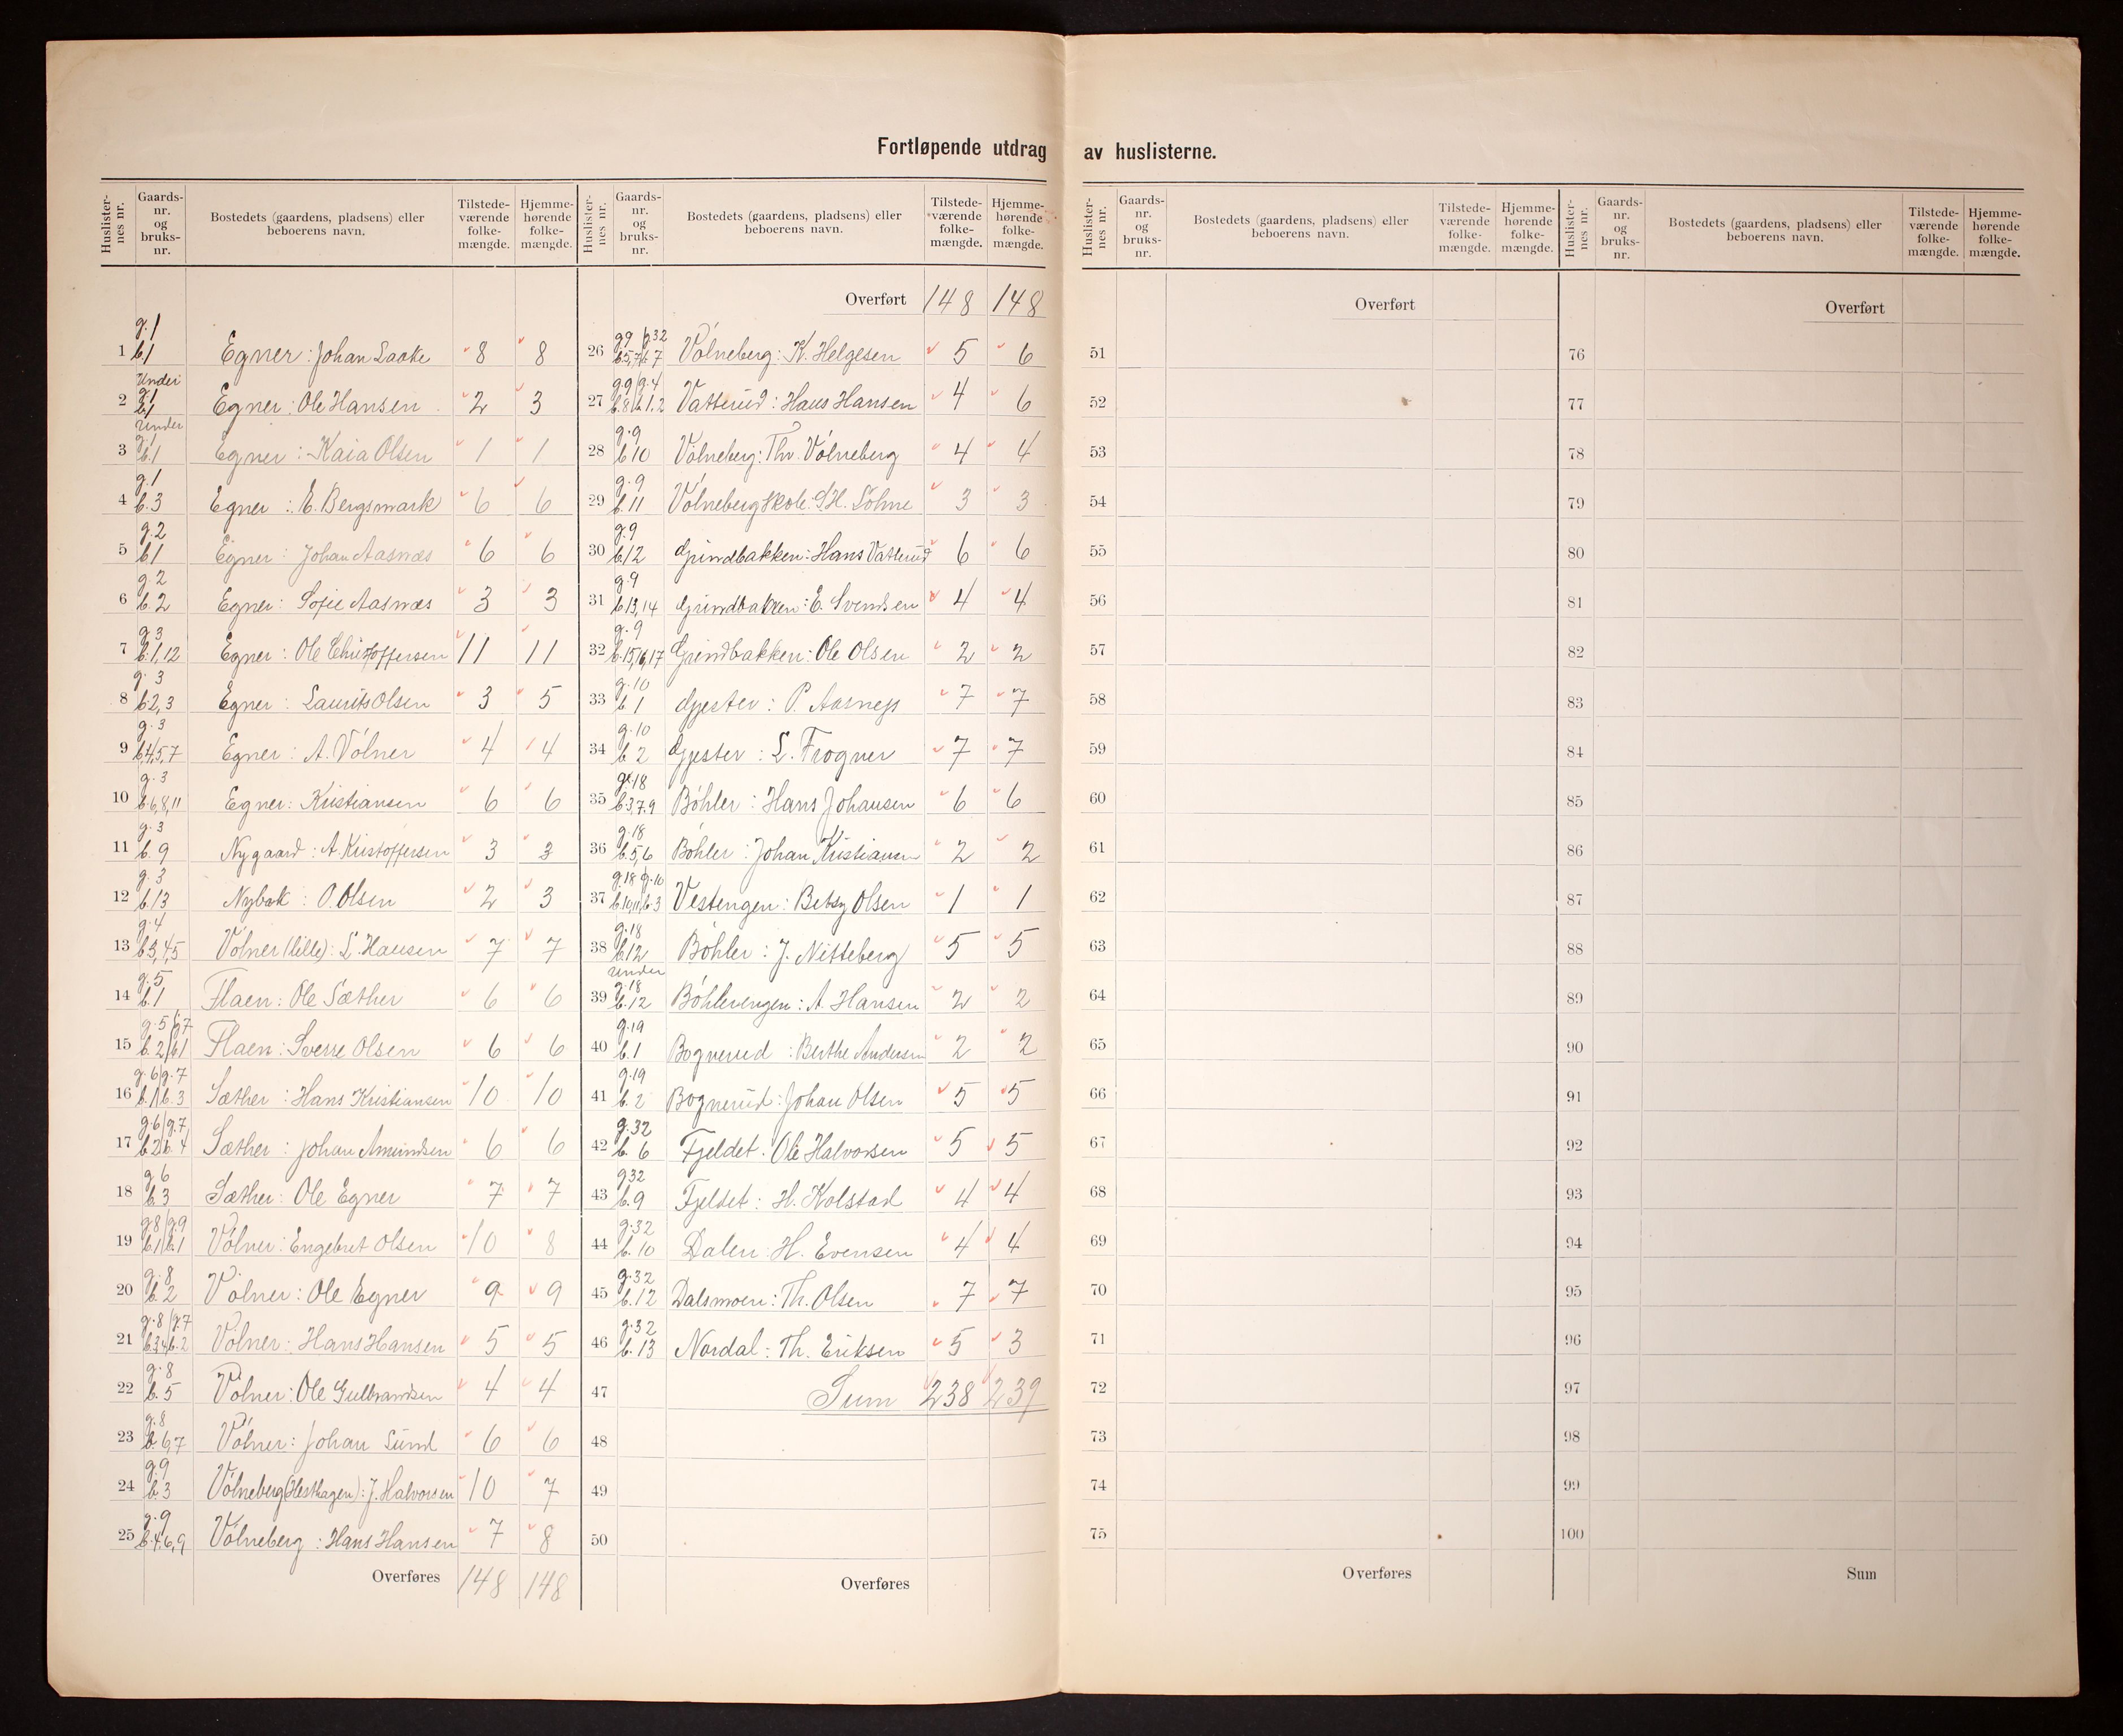 Fortløpende utdrag av huslisterne.
Huslisternes nr. Gaards-nr. og bruks-nr. Bostedets (gaardens, pladsens) eller beboerens navn. Tilstede-værende folke-mængde. Hjemme-hørende folke-mængde.
g.1
1 b.1 Egner: Johan Laake 8 8
Under g.1
2 b.1 Egner: Ole Hansen 2 3
Under g.1
3 b.1 Egner: Kaia Olsen 1 1
g.1
4 b.3 Egner: E. Bergsmark 6 6
g.2
5 b.1 Egner: Johan Aasnæs 6 6
g.2
6 b.2 Egner: Sofie Aasnæs 3 3
g.3
7 b.1,12 Egner: Ole Christoffersen 11 11
g.3
8 b.2,3 Egner: Laurits Olsen 3 5
g.3
9 b.4,5,7 Egner: A. Vólner 4 4
g.3
10 b.6,8,11 Egner: Kristiansen 6 6
g.3
11 b.9 Nygaard: A. Kristoffersen 3 3
g.3
12 b.13 Nybak: O. Olsen 2 3
g.4
13 b.3,4,5 Vólner (lille): L. Hansen 7 7
g.5
14 b.1 Flaen: Ole Sæther 6 6
g.5/g.7
15 b.2/b.1 Flaen: Sverre Olsen 6 6
g.6/g.7
16 b.1/b.3 Sæther: Hans Kristiansen 10 10
g.6/g.7
17 b.2/b.4 Sæther: Johan Amundsen 6 6
g.6
18 b.3 Sæther: Ole Egner 7 7
g.8/g.9
19 b.1/b.1 Vólner: Engebret Olsen 10 8
g.8
20 b.2 Vólner: Ole Egner 9 9
g.8/g.7
21 b.3,4/b.2 Vólner: Hans Hansen 5 5
g.8
22 b.5 Vólner: Ole Gulbrandsen 4 4
g.8
23 b.6,7 Vólner: Johan Sund 6 6
g.9
24 b.3 Vólneberg (Hesthagen): J. Halvorsen 10 7
g.9
25 b.4,6,9 Vólneberg: Hans Hansen 7 8
Overføres 148 148
Huslisternes nr. Gaards-nr. og bruks-nr. Bostedets (gaardens, pladsens) eller beboerens navn. Tilstede-værende folke-mængde. Hjemme-hørende folke-mængde.
Overført 148 148
g.9 g.32
26 b.5,7/b.7 Vólneberg: K. Helgesen 5 6
g.9/g.4
27 b.8/b.1.2 Vatterud: Hans Hansen 4 6
g.9
28 b.10 Vólneberg: Thv. Vólneberg 4 4
g.9
29 b.11 Vólneberg skole: S.H. Lóhne 3 3
g.9
30 b.12 Grindbakken: Hans Vatterud 6 6
g.9
31 b.13,14 Grindbakken: E. Svendsen 4 4
g.9
32 b.15,16,17 Grindbakken: Ole Olsen 2 2
g.10
33 b.1 Gjester: P. Aasness 7 7
g.10
34 b.2 Gjester: L. Frogner 7 7
g.18
35 b.3.7.9 Bóhler: Hans Johansen 6 6
g.18
36 b.5,6 Bóhler: Johan Kristiansen 2 2
g.18 g.10
37 b.10,11,b.3 Vestengen: Betsy Olsen 1 1
g.18
38 b.12 Bóhler: J. Nitteberg 5 5
Under g.18
39 b.12 Bóhlerengen: A. Hansen 2 2
g.19
40 b.1 Bognerud: Berthe Andersen 2 2
g.19
41 b.2 Bognerud: Johan Olsen 5 5
g.32
42 b.6 Fjeldet: Ole Halvorsen 5 5
g.32
43 b.9 Fjeldet: H. Kolstad 4 4
g.32
44 b.10 Dalen: H. Evensen 4 4
g.32
45 b.12 Dalsmoen: Th. Olsen 7 7
g.32
46 b.13 Nordal: Th. Eriksen 5 3
47 Sum 238 239
48
49
50
Overføres
Huslisternes nr. Gaards-nr. og bruks-nr. Bostedets (gaardens, pladsens) eller beboerens navn. Tilstede-værende folke-mængde. Hjemme-hørende folke-mængde.
Overført
51
52
53
54
55
56
57
58
59
60
61
62
63
64
65
66
67
68
69
70
71
72
73
74
75
Overføres
Huslisternes nr. Gaards-nr. og bruks-nr. Bostedets (gaardens, pladsens) eller beboerens navn. Tilstede-værende folke-mængde. Hjemme-hørende folke-mængde.
Overført
76
77
78
79
80
81
82
83
84
85
86
87
88
89
90
91
92
93
94
95
96
97
98
99
100
Sum